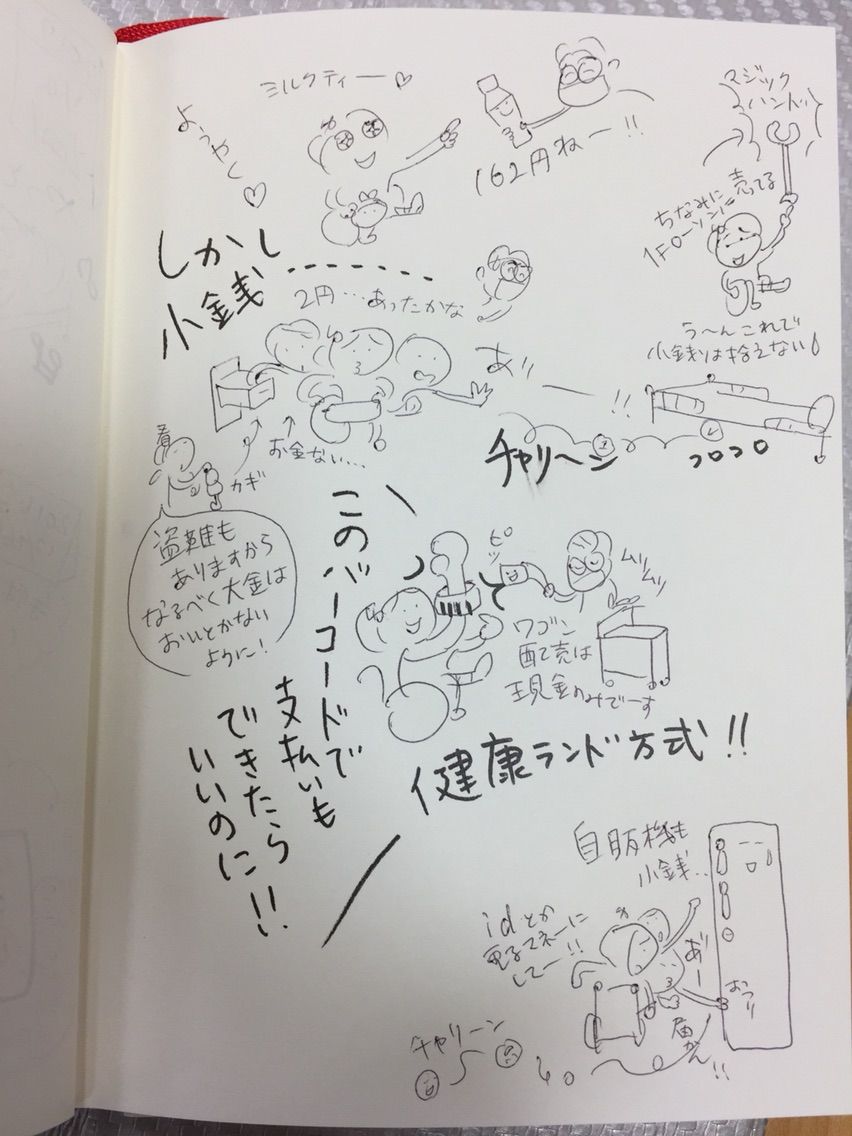 ミルクティー♡
ようやく♡
162円ねー!!
マジック
ハンドッ
ちなみに売ってる
1Fローソン
しかし
小銭-------
2円…あったかな
う〜んこれで
小銭は拾えない
あり
ー!!
チャリ〜ン
コロコロ
お金ない…
カギ
看
盗難も
ありますから
なるべく大金は
おいとかない
ように!
このバーコードで
支払いも
できたら
いいのに!!
ピッ
ムリ
ムリ
ワゴン
配売は
現金のみでーす
健康ランド方式!!
自販機も
小銭..
idとか
電子マネーに
してー!!
あー
おつり
届かん
!!
チャリーン